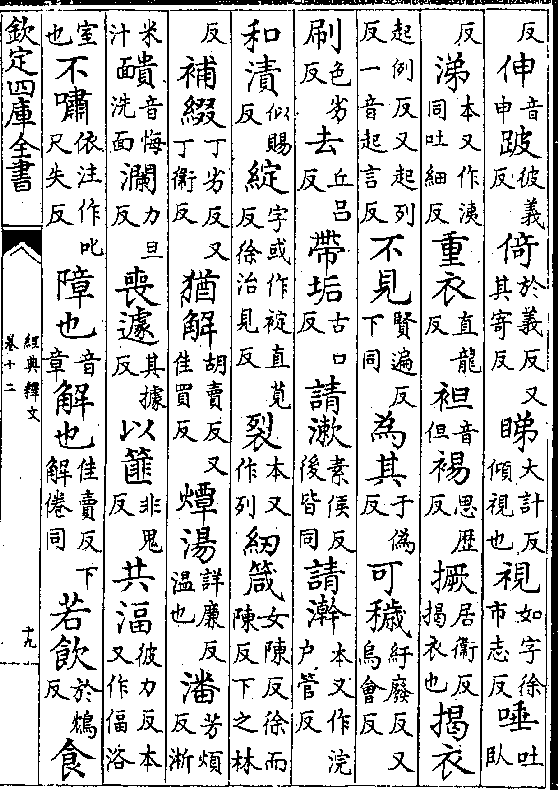 反伸音申跛彼義反倚於義反又其寄反睇大計反傾視也視如字徐市志反唾吐臥
反涕本又作洟同吐細反重衣直龍反袒音但裼思歷反撅居衛反揭衣也揭衣
起例反又起列反一音起言反不見賢遍反下同為其于偽反可穢紆廢反又烏會反
刷色劣反去丘呂反帶垢古口反請漱素侯反後皆同請澣本又作浣戶管反
和漬似賜反綻字或作直莧反徐治見反裂本又作列紉箴女陳反徐而陳反下之林
反補綴丁劣反又丁衛反猶解胡賣反又佳買反燂湯詳廉反溫也潘芳煩反淅
米汁靧音悔洗面瀾力旦反喪遽其據反以篚非鬼反共湢彼力反本又作偪浴
室也不嘯依注作叱尺失反障也音章解也佳賣反下解倦同若飲於鴆反食
欽定四庫全書
經典釋文
卷十二
十九